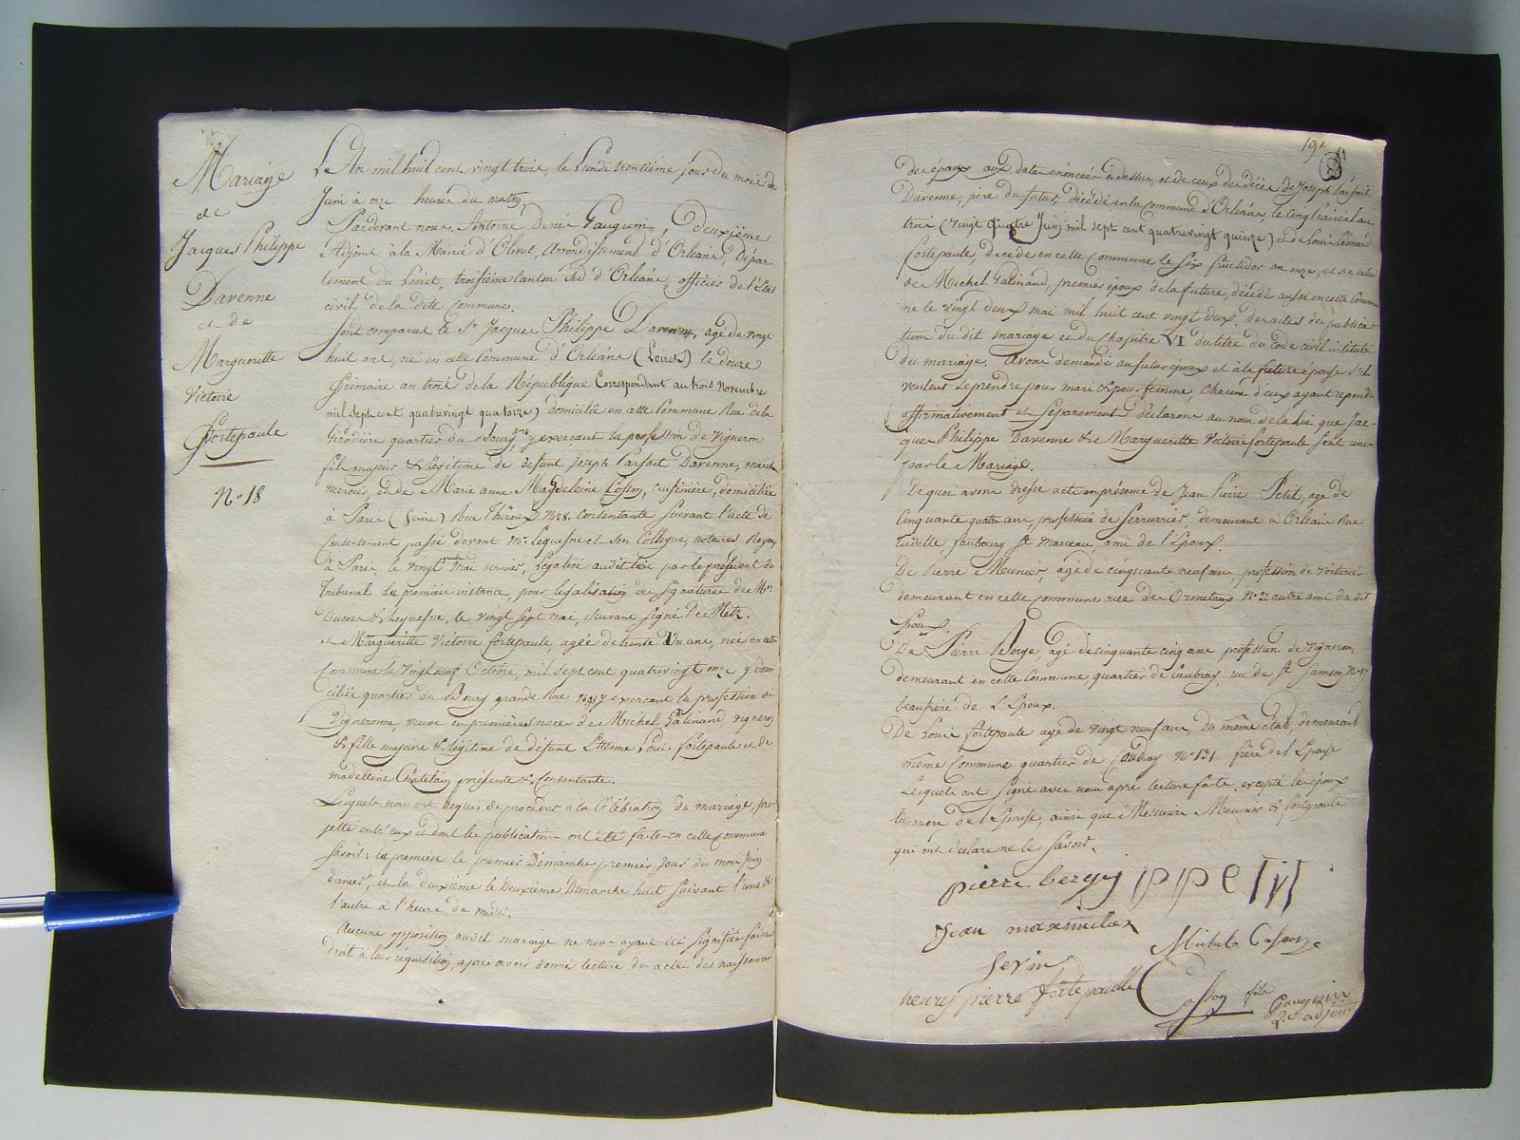 Mariage
de
Jacques Philippe
Davenne
et de
Marguerite
Victoire
fortepaule
N.º 18
L'An mil huit cent vingt trois, le Lundi trentième jour du mois de
Juin à onze heures du matin,
Pardevant nous Antoine Denis Gauguin, deuxième
Adjoint à la Mairie d'Olivet, Arrondissement d'Orléans, dépar
tement du Loiret, troisième canton Sud d'Orléans, officier de l'état
civil de la dite commune.
Sont comparus le Sr. Jacques Philippe Davenne, agé de vingt
huit ans, né en cette Commune d'Orléans (Loiret) le douze
frimaire an trois de la République Correspondant au trois Novembre
mil sept cent quatrevingt quatorze) domicilié en cette Commune Rue de la
quartier du Bourg, y exerçant la profession de Vigneron
fils majeur & légitime de défunt Joseph Parfait Davenne,
et de Marie anne Magdeleine Cosson, cuisinière, domiciliée
à Paris (Seine) Rue Thiroux Nº 8. Consentante suivant l'acte de
Consentement passé devant Me. Lequesne et son Collègue, notaires Royaux
à Paris, le vingt Mai dernier, légalisé audit lieu par le président du
Tribunal de première instance, pour légalisation des signatures de Mrs
& Lequesne, le vingt sept mai, suivant signé De Metz.
et Marguerite Victoire fortepaule, agée de trente Un ans, née en cette
Commune le vingt neuf Octobre, mil sept cent quatrevingt onze y domi
ciliée quartier du Bourg grande Rue exerçant la profession de
Vigneronne, veuve en premières noces de Michel Galinand vigneron
& fille majeure & légitime de défunt Etienne Louis fortepaule et de
madeleine Chatelain présente & Consentante.
Lesquels nous ont requis de procéder à la Célébration du mariage pro
jetté entr'eux et dont les publications ont été faites en cette Commune
savoir: la première le premier Dimanche premier jour du mois juin
et la deuxième le Deuxième Dimanche huit suivant l'une &
l'autre à l'heure de midi.
Aucune opposition audit mariage ne nous ayant été signifiée faisant
droit à leur réquisition, après avoir donné lecture des actes de naissances
19e
des époux aux dates énoncées ci dessus, et de ceux des décès de Joseph Parfait
Davenne, père du futur, décédé en la commune d'Orléans, le cinq an
trois (vingt quatre Juin mil sept cent quatrevingt quinze) et de Louis Etienne
fortepaule, décédé en cette Commune le six fructidor an onze, et de celui
de Michel Galinand, premier époux de la future, décédé aussi en cette Commu
ne le vingt deux mai mil huit cent vingt deux. des actes de publica
tion du dit mariage et du Chapitre VI du titre du Code civil intitulé
du mariage. Avons demandé au futur époux et à la future épouse s'ils
veulent se prendre pour mari & pour femme chacun d'eux ayant répondu
affirmativement et séparément déclarons au nom de la Loi que Jac-
ques Philippe Davenne & Marguerite Victoire fortepaule sont unis
par le Mariage.
De quoi avons dressé acte en présence de Jean Pierre Petit, agé de
Cinquante quatre ans, profession de Serrurier, demeurant à Orléans Rue
faubourg St. Marceau ami de l'Epoux.
De Pierre Meunier, agé de cinquante neuf ans profession de Voiturier
demeurant en cette commune rue des Ormetaux Nº 2 autre ami du dit
Epoux.
De Pierre Berge, agé de cinquante cinq ans profession de vigneron
demeurant en cette Commune quartier de Caubray, rue de St. Samson
beaufrère de L'Epoux.
De Louis fortepaule agé de vingt neuf ans du même état, demeurant
même Commune quartier de Caubray Nº 131 frère de l'Epouse
Lesquels ont signé avec nous après lecture faite, excepté les époux
la mère de l'Epouse, ainsi que Messieurs Meunier & fortepaule
qui ont déclaré ne le savoir.
pierre bergé JPP Petit
Jean maximilien
Sevin
henry pierre fortepaulle
Cosson fils
Gauguin
2e adjoint